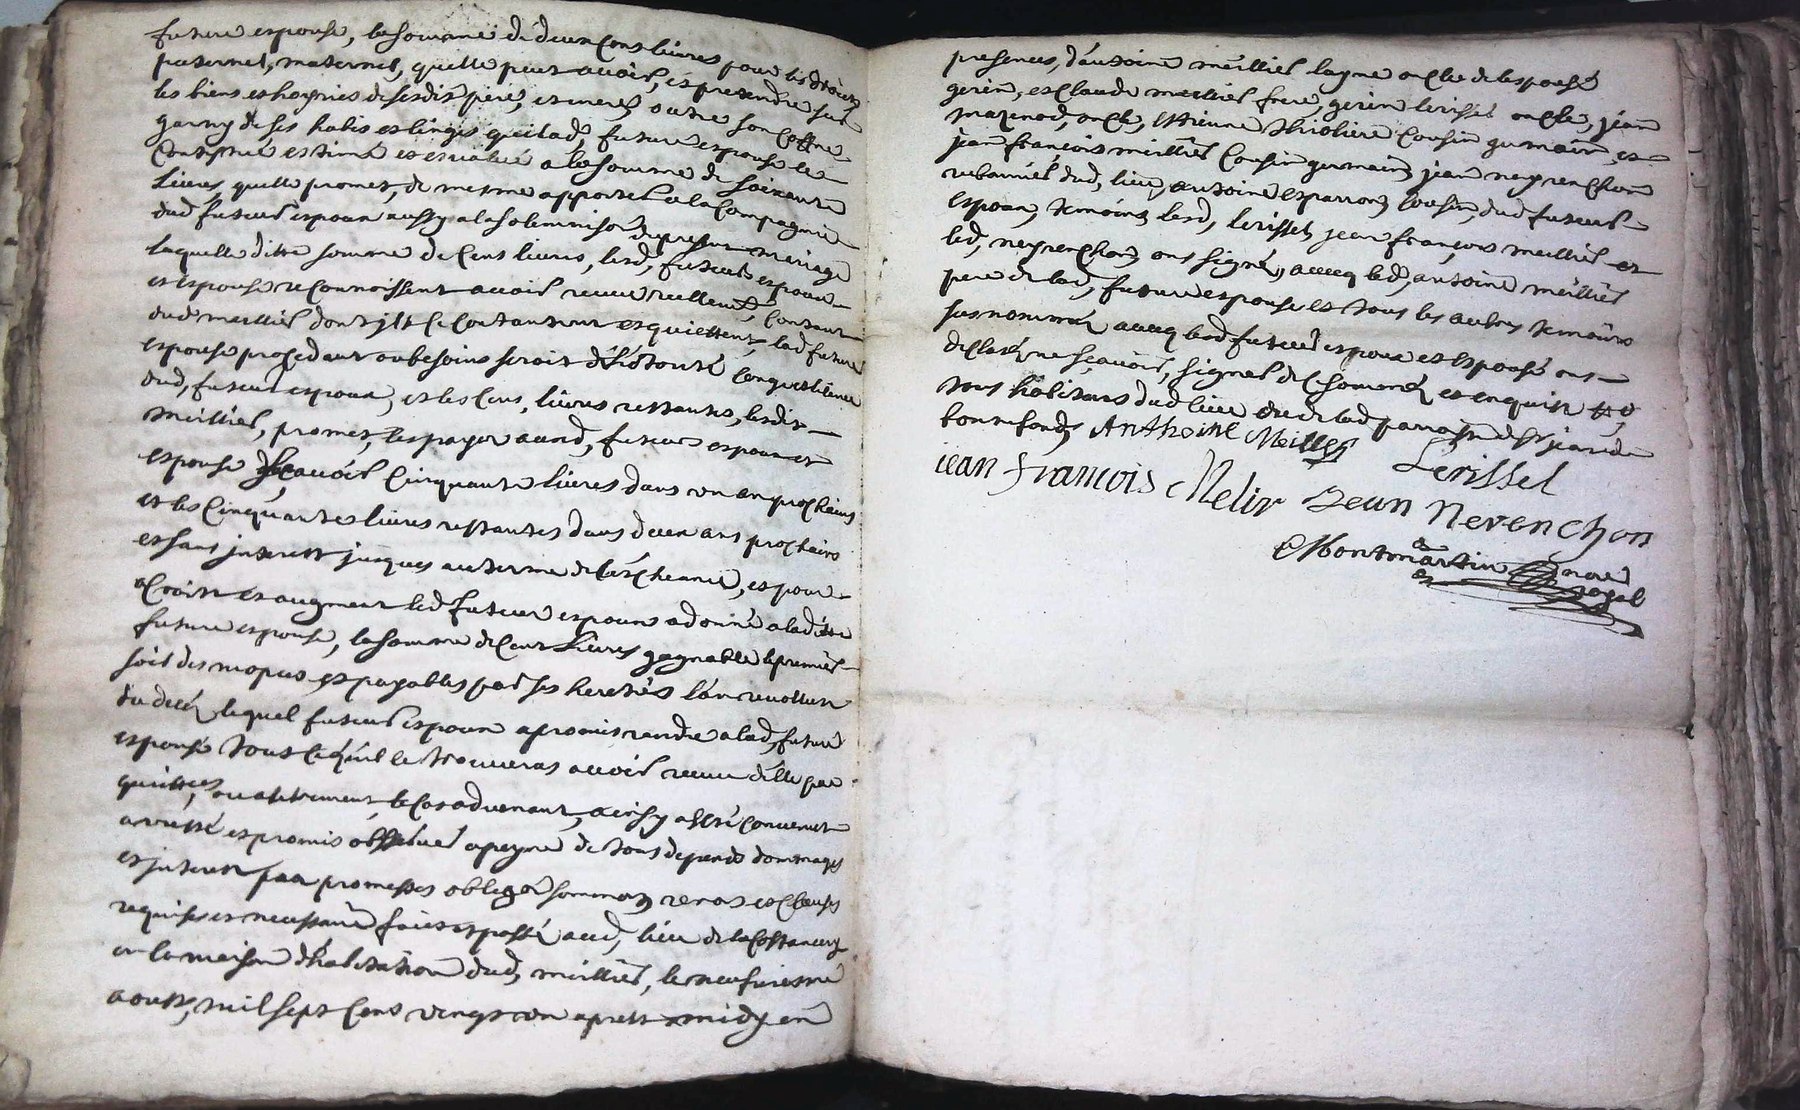 future espouse, la somme de deux cens livres pour les droicts
paternel, maternel, qu'elle peut avoir, et pretendre sur
les biens et hoyries de sesdits pere, et mere, outre son coffre
garny de ses habis et linges que lad, future espouse le
constitué estimé et evalué a la somme de soixante
livres, quelle promet, de mesme apporter a la compagnie
dud futeur espoux aussy a la solemnisaon du presant mariage
laquelle ditte somme de cens livres, lesd, futeurs espoux
et espouse reconnoissent avoir receue reellemt, contant
dud meillier dont ils se contantent et quiettent, lad future
espouse procedant ou besoins seroit de l'autorité
dud, futeur espoux, et les cens, livres restantes, ledit
meillier, promet, les payer ausd, futeurs espoux et
espouse scavoir cinquante livres dans un an prochains
et les cinquantes livres restantes dans deux ans prochains
et sans interest jusques au terme de l'escheance, et pour
acroist et augment led futeur espoux a donné a laditte
future espouse, la somme de cent livres gagnable le premier
soir des nopces et payables par ses heretiés l'an revollust
du decés lequel futeur espoux a promis rendre a lad, future
espouse tout ce qu'il se trouveras avoir receue d'elle par
quittces, ou autrement, le cas advenant, ainsy a esté convenut
arresté et promis observer a peyne de tous depends dommages
et interest par promesses obligaon sommaon renon et clauses
requises et necessaire fait et passé aud, lieu de la
en la maison d'habitation dud, meillier, le neufviesme
aoust, mil sept cens vingt un aprest midy en
presences, d'antoine meillier layné oncle de l'espouse
gerin, et claude meillier frere, gerin lerissel oncle, jean
mazenod, oncle, estienne thioliere cousin germain, et
jean françois meillier cousin germain, jean neyrenchon
rubannier dud, lieu, antoine esparron cousin, dud futeur
espoux, temoins lesd, lerissel jean françois meillier et
led, neyrenchon ont signé, avecq led, antoine meillier
pere de lad, future espouse et tous les autres temoins
susnommés avecq lesd futeurs espoux et espouse ont
declaré ne sçavoir, signer de ce sommés et enquist
tous habitans dud lieu et de lad parroisse de st jean de
bonnefonds Anthoine Meillier
Lerissel
iean francois Melier Jean Nerenchon
Montmartin nore
royal